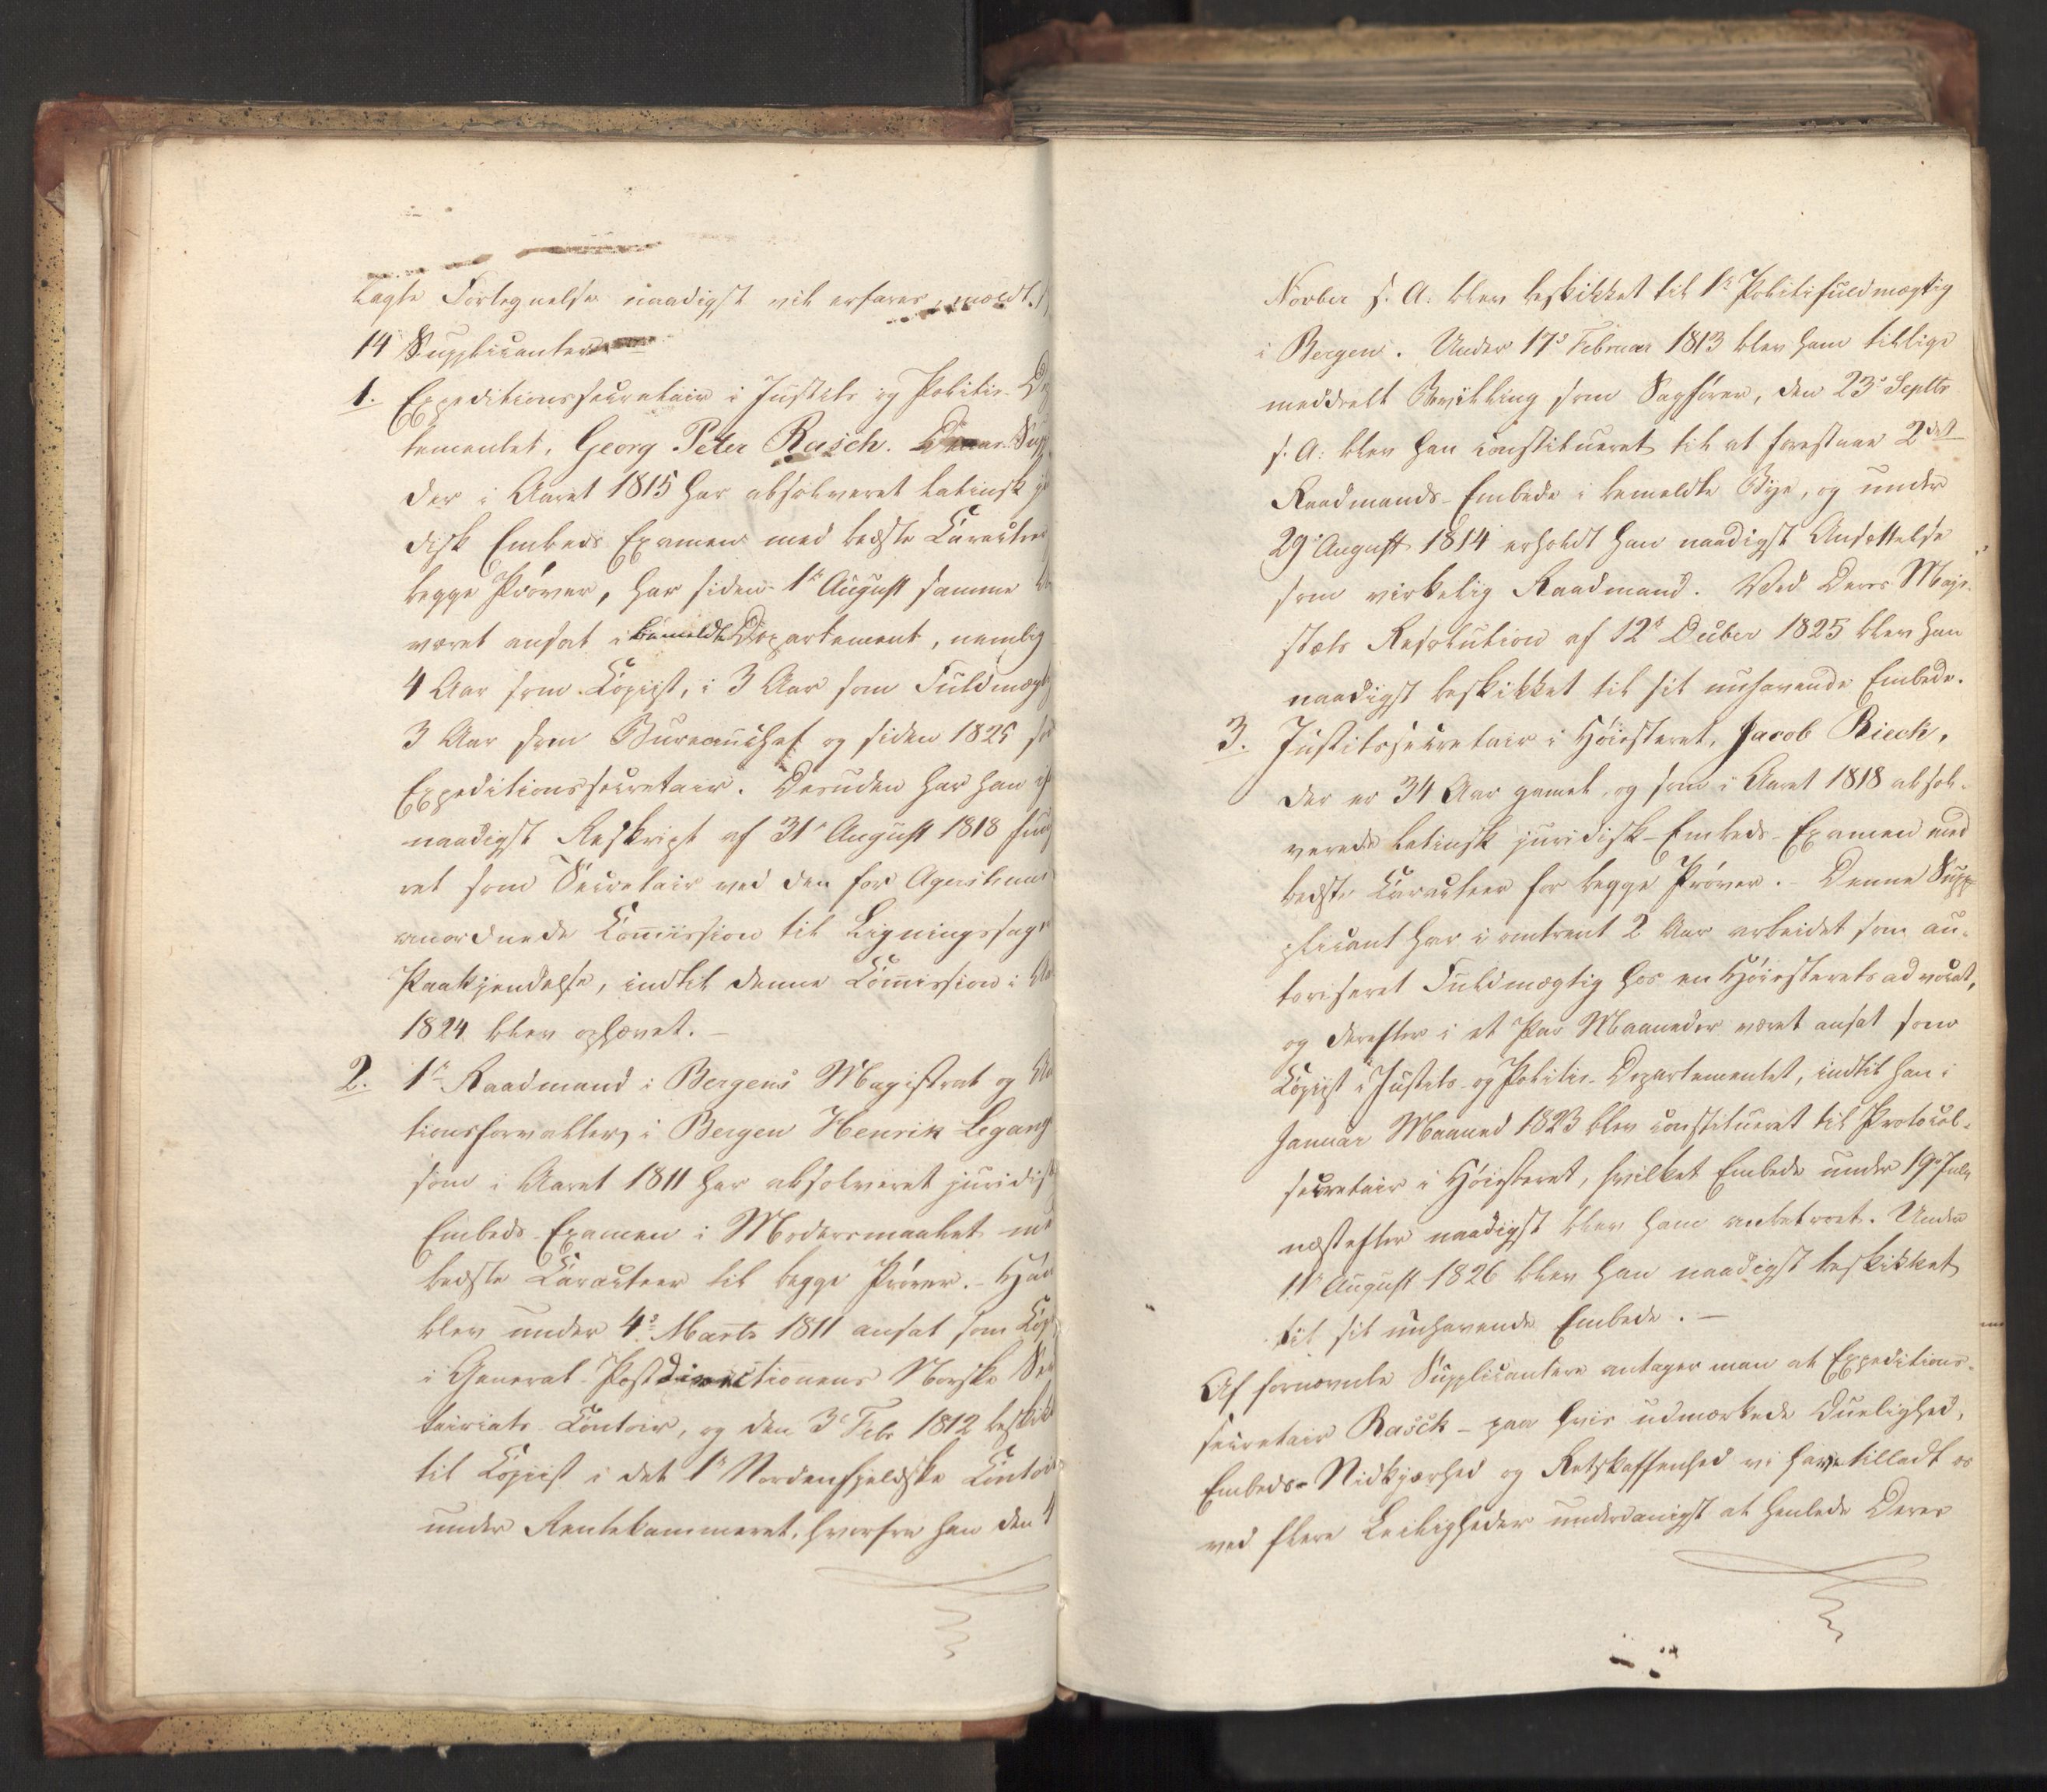 lagte Fortegnelse naadigst vil erfares, meldt
14 Supplicanter
1. Expeditionssecretair i Justits og Politie-De
tementet, Georg Peter Rasch. Denne Supp
der i Aaret 1815 har absolveret latinsk
disk Embeds Examen med bedste Caracteer
begge Prøver, har siden 1e August samme
været ansat i bemeldte Departement, nemlig
4 Aar som Copiist, i 3 Aar som Fuldmægt
3 Aar som Bureauchef og siden 1825
Expeditionssecretair. Desuden har han
naadigst Reskript af 31e August 1818 fung
ret som Secretair ved den for Agershuus
anordnede Commission til Ligningssagers
Paakjendelse, indtil denne Commission i
1824 blev ophævet. -
2. 1e Raadmand i Bergens Magistrat og
tionsforvalter i Bergen Henrik Legang
som i Aaret 1811 har absolveret juridisk
Embeds-Examen i Modersmaalet
bedste Caracteer til begge Prøver. - Han
blev under 4de Marts 1811 ansat som Cop
i General-Postdirectionens Norske Se
tairiats-Contoir, og den 3e Febr 1812 beskikk
til Copiist i det 1e Nordenfjeldske Contoir
under Rentekammeret, hvorfra han den 4
Novber s. A. blev beskikket til 1e Politifuldmægtig
i Bergen. Under 17de Februar 1813 blev ham tillige
meddeelt Bevilling som Sagfører, den 23de Septbr
s. A. blev han constitueret til at forestaae 2det
Raadmands-Embede i bemeldte Bye, og under
29 August 1814 erholdt han naadigst Ansættelse
som virkelig Raadmand. Ved Deres Maje-
stæts Resolution af 12e Decber 1825 blev han
naadigst beskikket til sit nuhavende Embede.
3. Justitssecretair i Høiesteret, Jacob Rieck,
der er 34 Aar gamel, og som i Aaret 1818 absol-
verede latinsk juridisk-Embeds-Examen med
bedste Caracteer for begge Prøver. - Denne Supp
plicant har i omtrent 2 Aar arbeidet som au-
toriseret Fuldmægtig hos en Høiesteretsadvocat,
og derefter i et Par Maaneder været ansat som
Copiist i Justits- og Politie-Departementet, indtil han i
Januar Maaned 1823 blev constitueret til Protocol-
secretair i Høiesteret, hvilket Embede under 19de July
næstefter naadigst blev ham anbetroet. Under
11e August 1826 blev han naadigst beskikket
til sit nuhavende Embede. -
Af fornævnte Supplicantere antager man at Expeditions-
secretair Rasch - paa hvis udmærkede Duelighed,
Embeds-Nidkjærhed og Retskaffenhed vi have tilladt os
ved flere Leiligheder underdanigst at henlede Deres